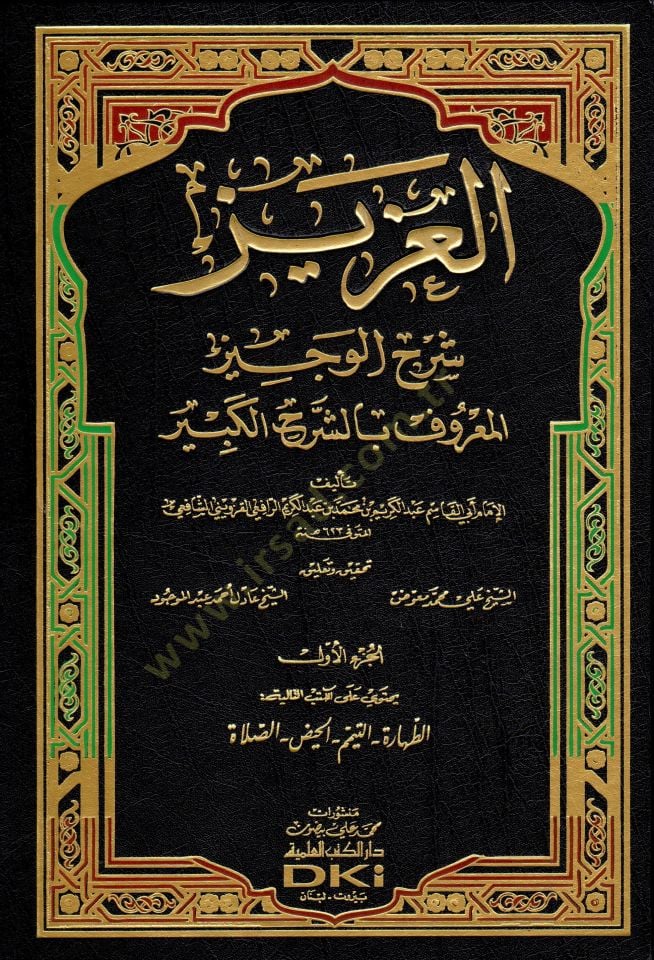 العزيز
شرح الوجيز
المعروف بالشرح الكبير
تأليف
الإمام أبي القاسم عبد الكريم بن محمد بن عبد الكريم الرافعي القزويني الشافعي
المتوفى سنة ٦٢٣ هـ
تحقيق وتعليق
الشيخ علي محمد معوض الشيخ عادل أحمد عبد الموجود
الجزء الأول
يحتوي على الكتب التالية:
الطهارة - التيمم - الحيض - الصلاة
منشورات
محمد علي بيضون
دار الكتب العلمية
DKi
بيروت - لبنان
www.irsad.com.tr